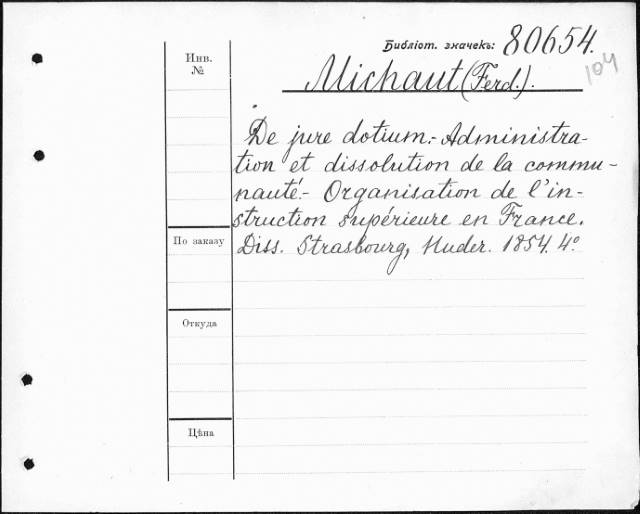 Библіот. значекъ: 80654.
104
Инв.
№
Michaut (Ferd.).
De jure dotium.- Administra-
tion et dissolution de la commu-
nauté.- Organisation de l'in-
struction supérieure en France.
По заказу
Diss. Strasbourg, Huder. 1854. 4º
Откуда
Цѣна